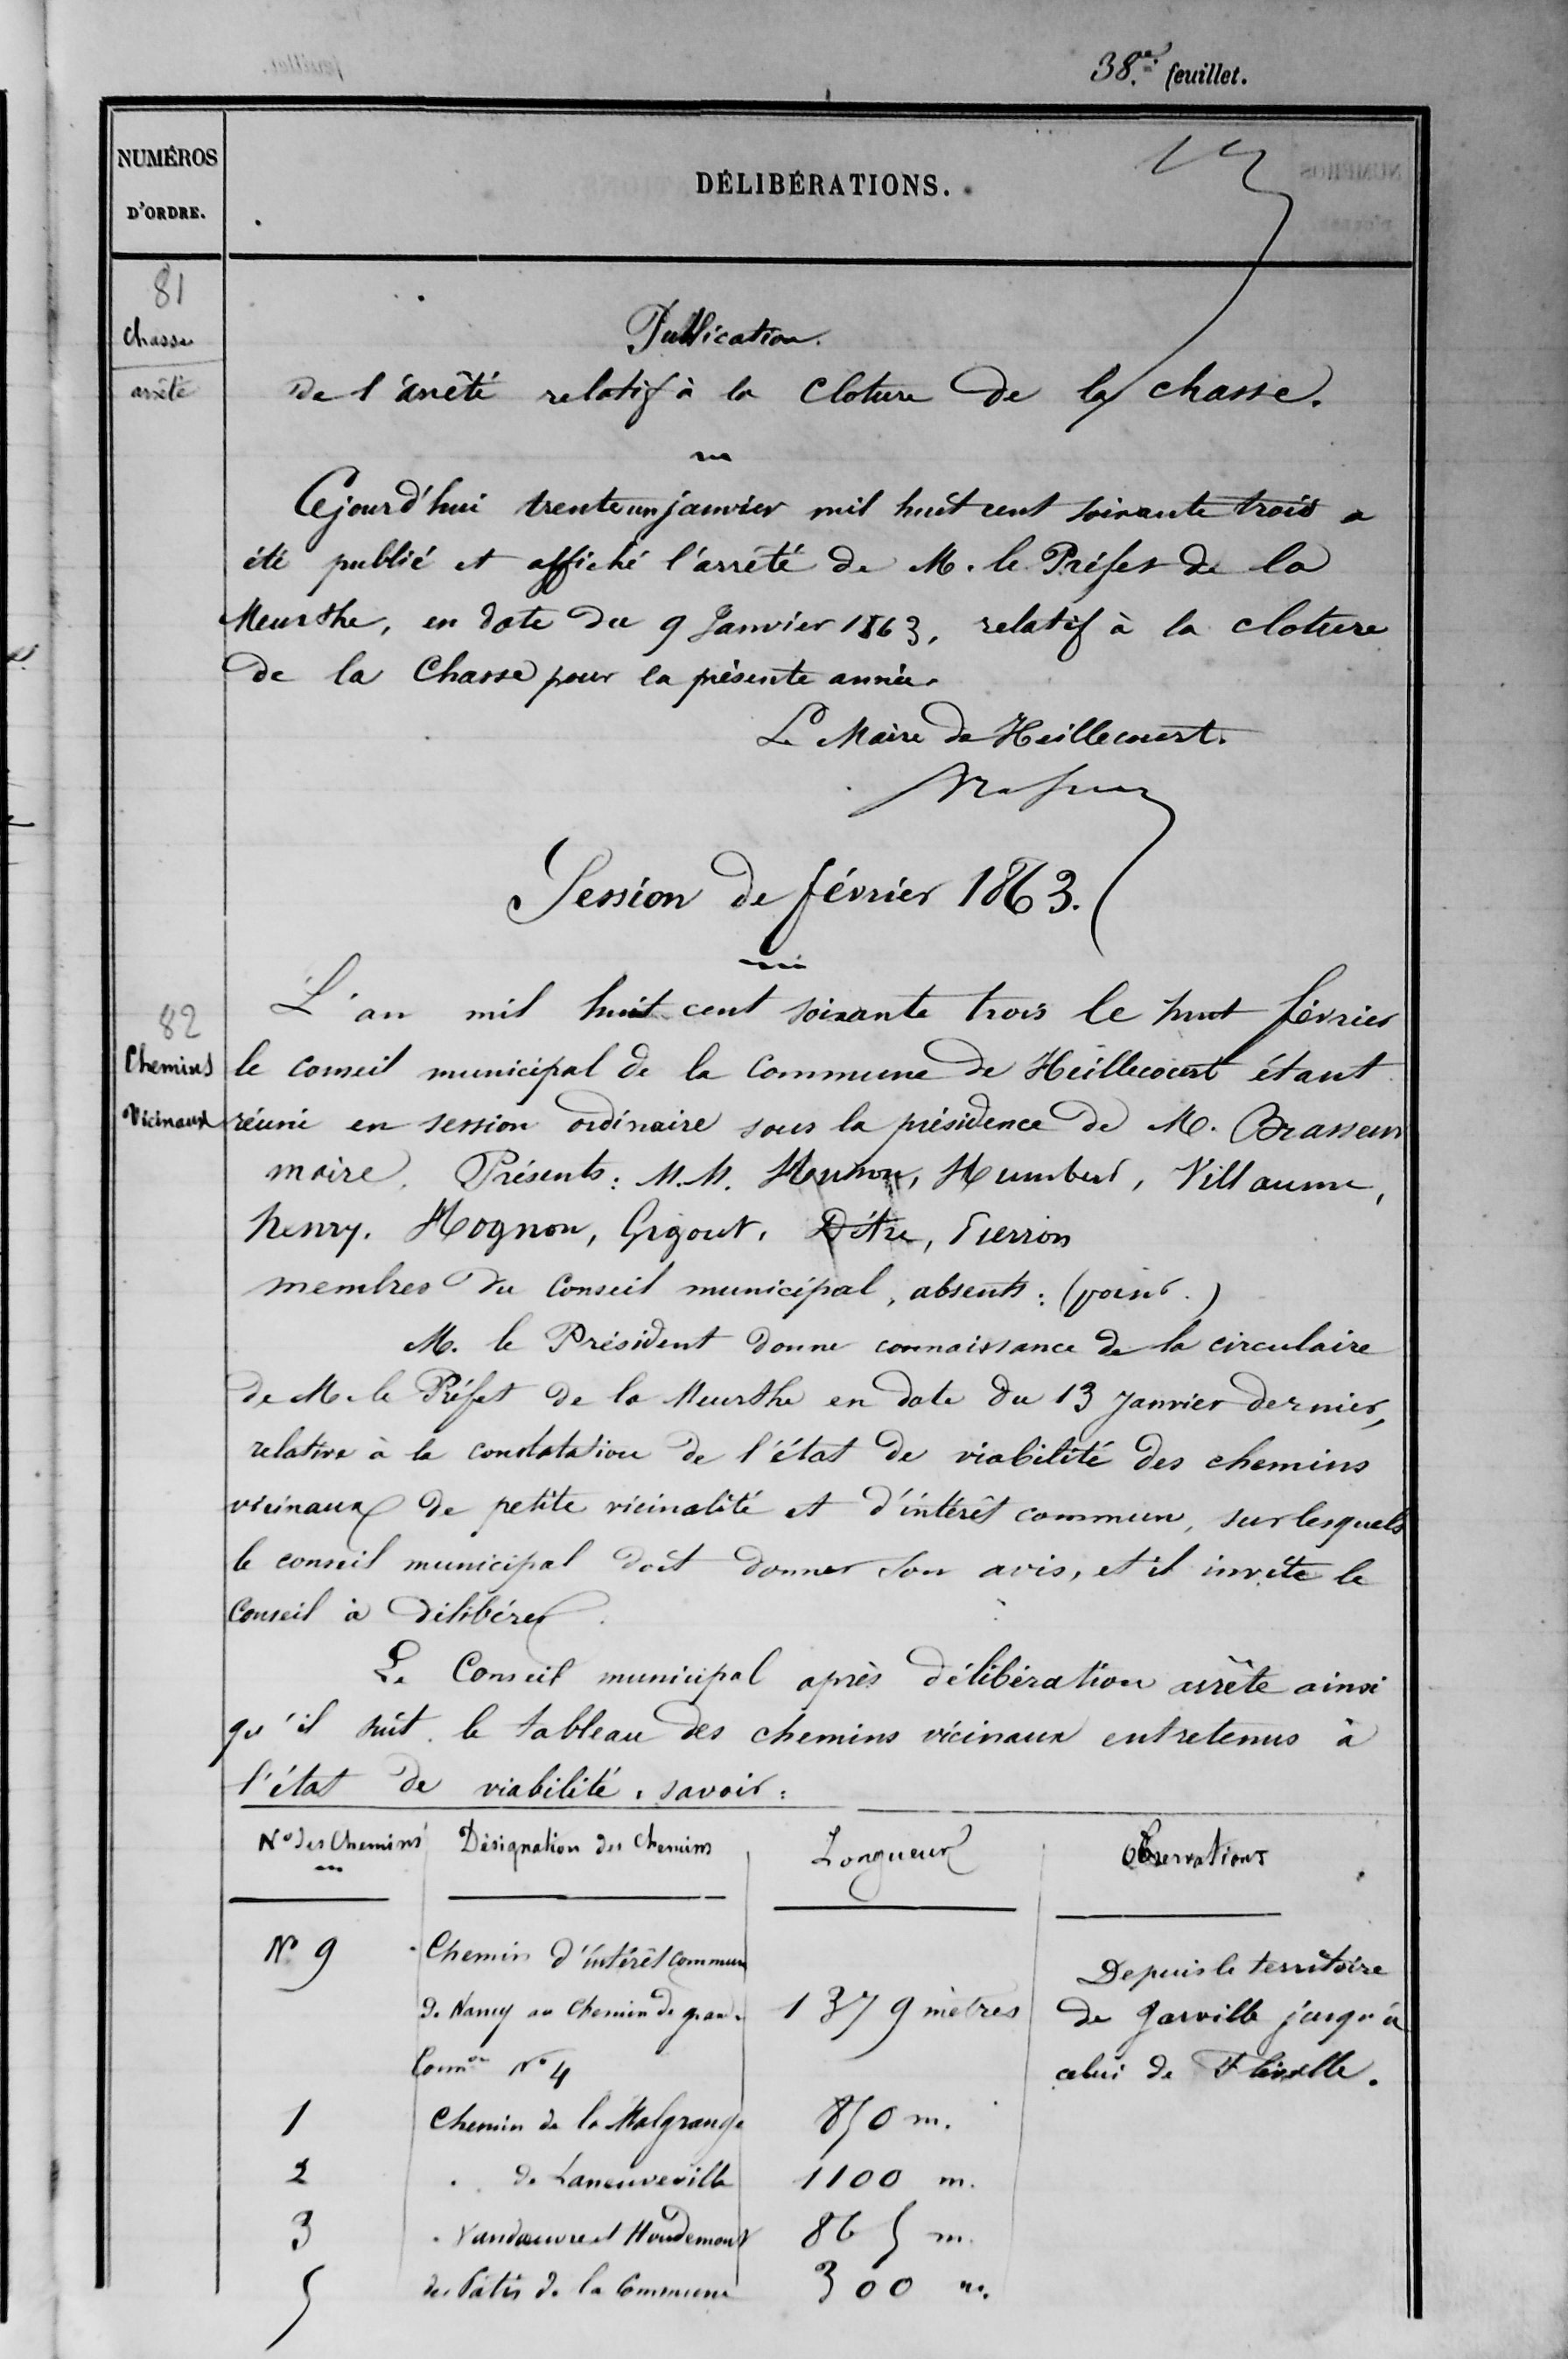 38.e feuillet.
NUMÉROS
D'ORDRE.
DÉLIBÉRATIONS.
81
Chasse
arrêté
Publication.
de l'arrêté relatif à la cloture de la chasse.
Cejourd'hui trente un janvier mil huit cent soixante trois a
été publié et affiché l'arrêté de M. le Préfet de la
Meurthe, en date du 9 Janvier 1863, relatif à la cloture
de la Chasse pour la présente année.
Le Maire de Heillecourt.
Session de février 1863.
82
Chemins
Vicinaux
L'an mil huit cent soixante trois le huit février
le conseil municipal de la commune de Heillecourt étant
réuni en session ordinaire sous la présidence de M. Brasseur
maire. Présents: M.M. Humbert, Villaume,
henry. Hognon, Gigout, Dître, Pierron
membres du Conseil municipal, absents: (point.)
M. le Président donne connaissance de la circulaire
de M. le Préfet de la Meurthe en date du 13 Janvier dernier,
relative à la constatation de l'état de viabilité des chemins
vicinaux de petite vicinalité et d'intérêt commun, sur lesquels
le conseil municipal doit donner son avis, et il invite le
Conseil à délibérer.
Le Conseil municipal après délibération arrête ainsi
qu'il suit le tableau des chemins vicinaux entretenus à
l'état de viabilité, savoir:
No des Chemins Désignation des Chemins Longueur Observations
No 9 Chemin d'intérêt commun
de Nancy au Chemin de gran. 1379 mètres
Comon No 4
Depuis le territoire
de Jarville jusqu'à
celui de Fléville.
1 Chemin de la Malgrange 850 m.
2 de Laneuveville 1100 m.
3 Vandœuvre et Houdemont 865 m.
5 des Patis de la Commune 300 m.